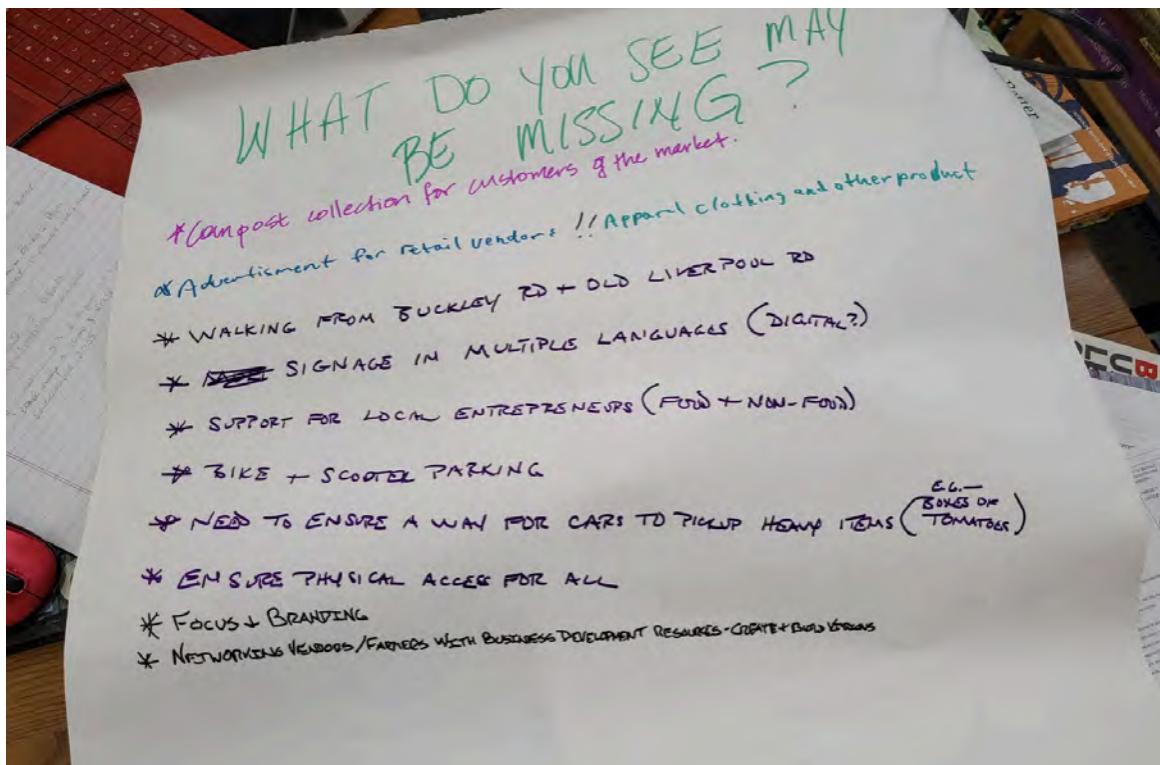 WHAT DO YOU SEE MAY
BE MISSING?
* Compost collection for customers of the market.
* Advertisment for retail vendors !! Apparel clothing and other product
* WALKING FROM BUCKLEY RD + OLD LIVERPOOL RD
* SIGNAGE IN MULTIPLE LANGUAGES (DIGITAL?)
* SUPPORT FOR LOCAL ENTREPRENEURS (FOOD + NON-FOOD)
* BIKE + SCOOTER PARKING
* NEED TO ENSURE A WAY FOR CARS TO PICKUP HEAVY ITEMS (E.G. — BOXES OF TOMATOES)
* ENSURE PHYSICAL ACCESS FOR ALL
* FOCUS + BRANDING
* NETWORKING VENDORS/FARMERS WITH BUSINESS DEVELOPMENT RESOURCES - CREATE + BUILD